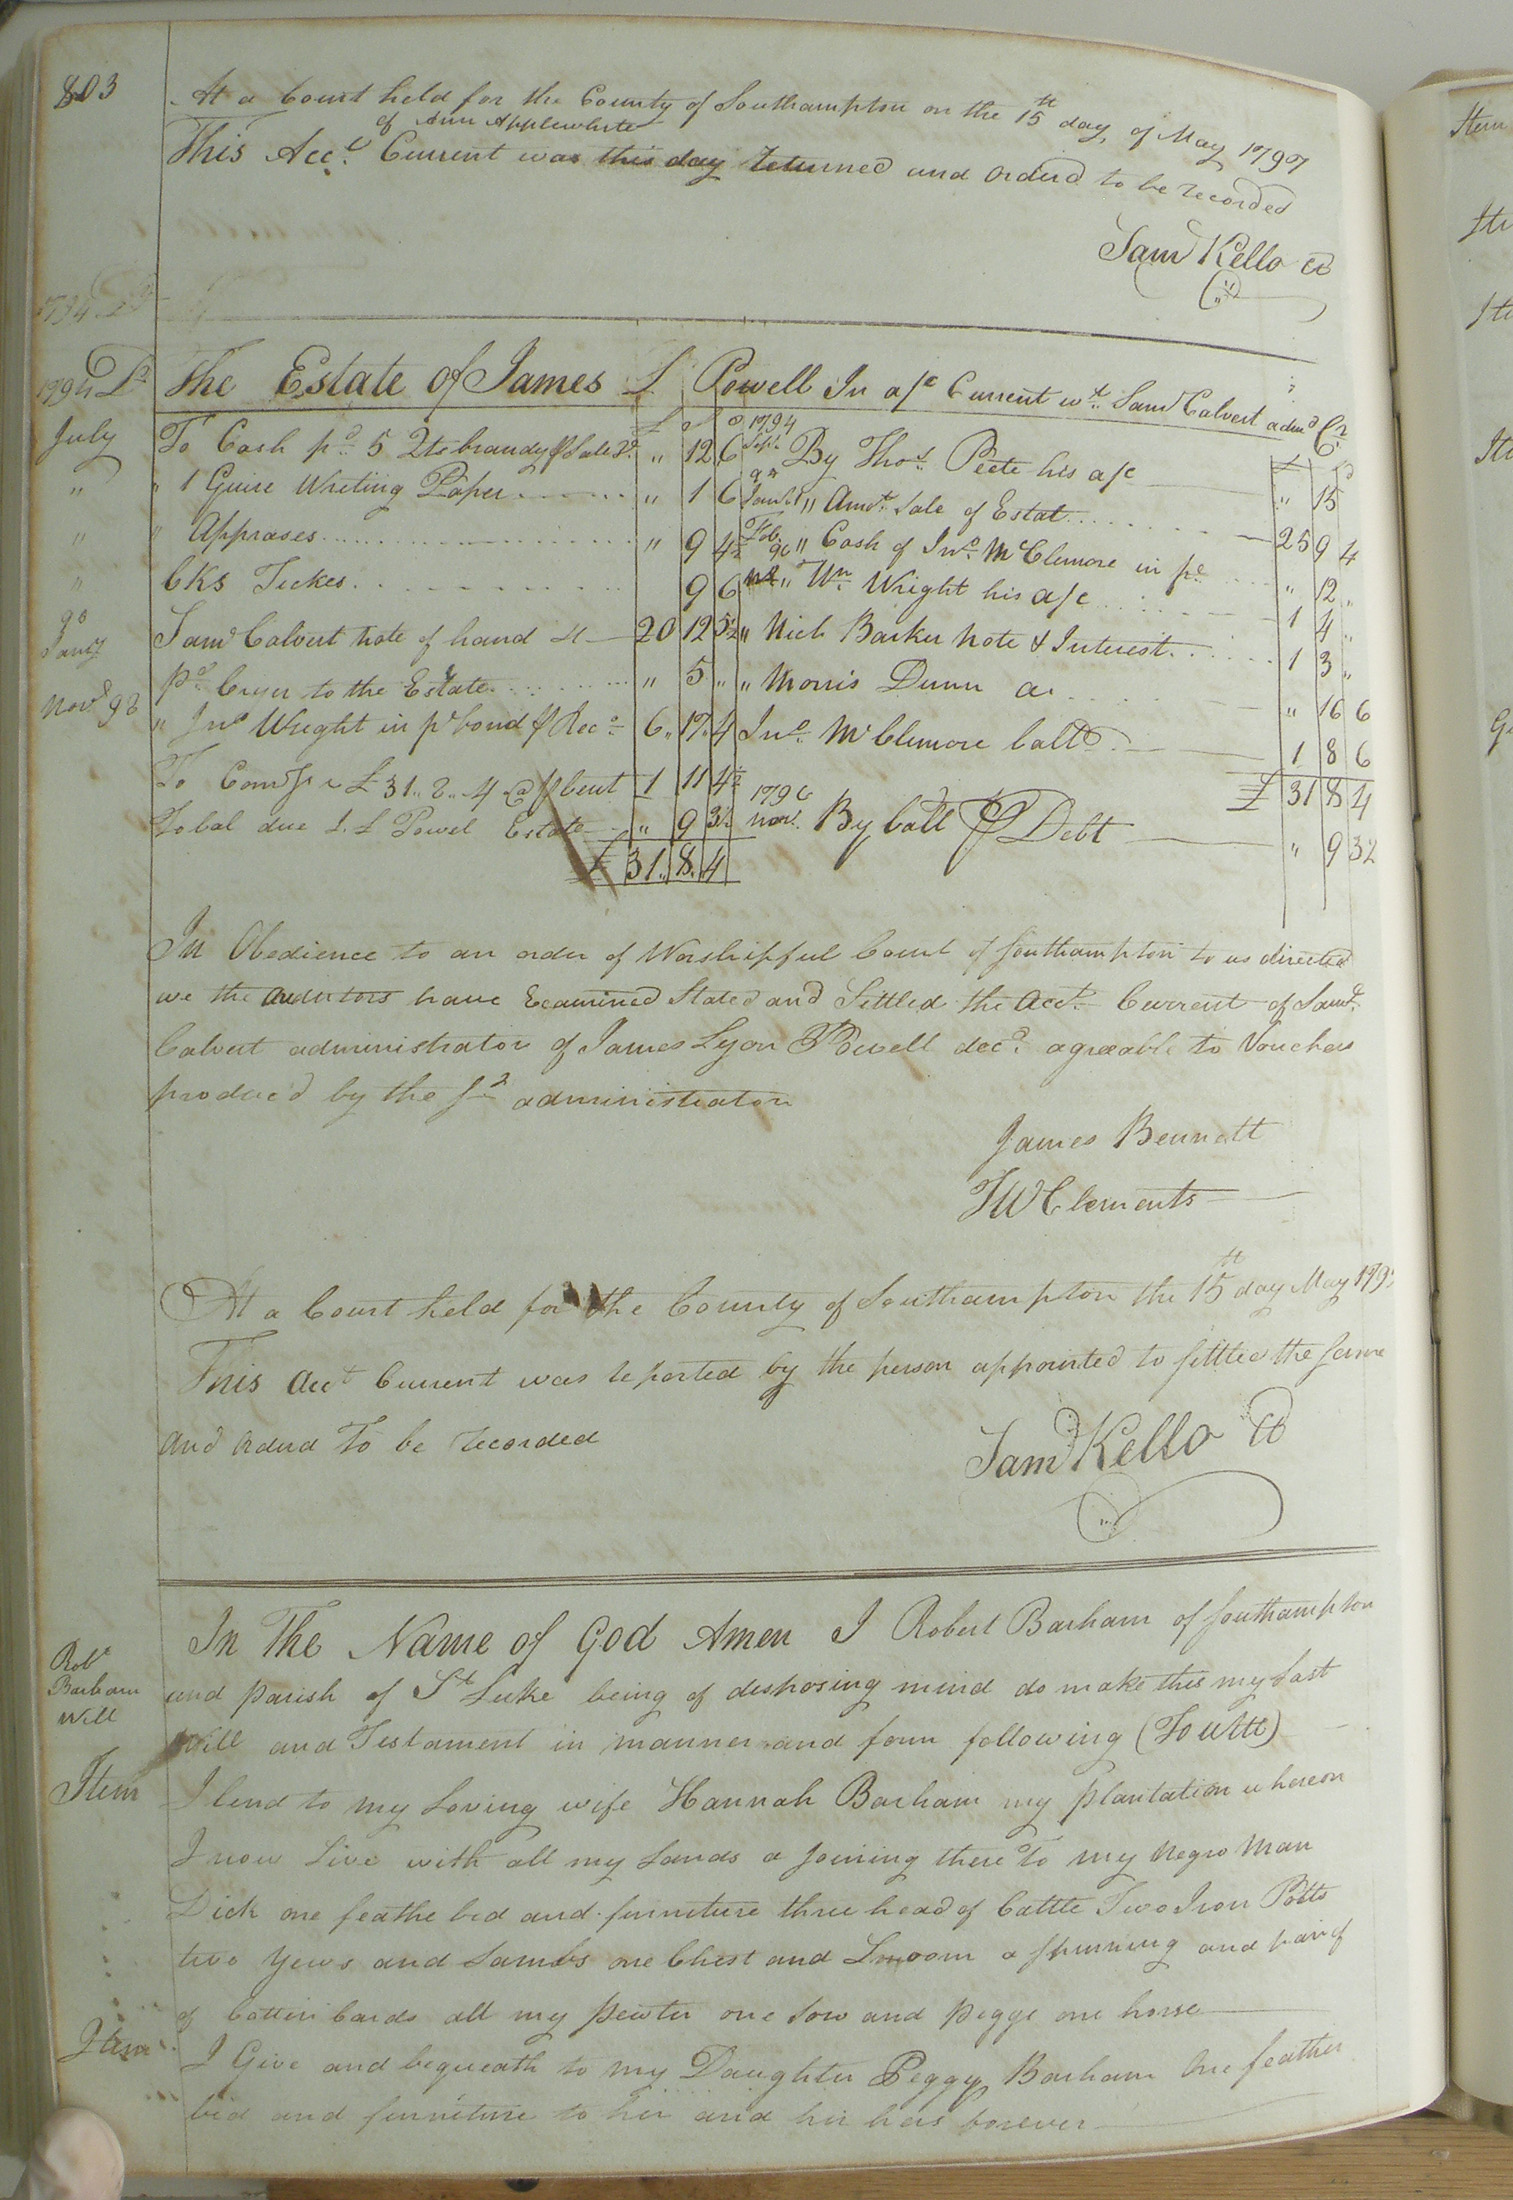 803
At a Court held for the County of Southampton on the 15th day of May 1797
of Ann Applewhite
This Acct. Current was this day Returned and Orderd to be recorded
Saml Kello CC
1794 Dr The Estate of James L Powell In a/c Current wt. Saml Calvert admr Cr
£ s d 1794
July To Cash pd. 5 Qts brandy " 12 6 Sept. By Thos. Peete his a/c " 15
" " 1 Quire Writing Paper " 1 6 " Amot. Sale of Estat 25 9 4
" " Apprases " 9 4½ Feb. 96 " Cash of Jno. McClemore in pt. " 12 "
" CKS Tickes 9 6 " Wm. Wright his a/c 1 4 "
Jany Saml Calvert Note of hand 20 12 5½ " Nich Barker Note & Interest 1 3 "
pd. Cryer to the Estate " 5 " " Morris Dunn " 16 6
Nov 98 " Jno Wright in pt bond & Rec 6 17 4 Jno. McClemore 1 8 6
To £31..8..4 @ 5 p Cent 1 11 4½ £ 31 8 4
To bal due J. L Powel Estate " 9 3½ 1796 Nov. By ball Debt " 9 3½
£ 31.. 8.. 4
In Obedience to an order of Worshipful Court of Southampton to us directed
we the Auditors have Examined Stated and Settled the Acct. Current of Saml.
Calvert administrator of James Lyon Powell decd. agreeable to Vouchers
produc'd by the sd administrator
James Bennett
TW Clements
At a Court held for the County of Southampton the 15th day May 179
This Acct Current was reported by the person appointed to settled the same
and Orderd To be recorded
Saml Kello CC
Robt
Barham
Will
In The Name of God Amen I Robert Barham of Southampton
and parish of St Luke being of desposing mind do make this my Last
Will and Testament in manner and form following (To Witt)
Item I lend to my Loving wife Hannah Barham my plantation whereon
I now Live with all my Lands a Joining there To my Negro Man
Dick one feathe bed and furniture three head of Cattle Two Iron Potts
two Yews and Lambs one Chest and Lnoom a Spinning and pair of
of Cotten Cards all my Pewter one Sow and Peggs one horse
Item I Give and bequeath to my Daughter Peggy Barham One feather
bed and furniture to her and her hers forever
Item
Item